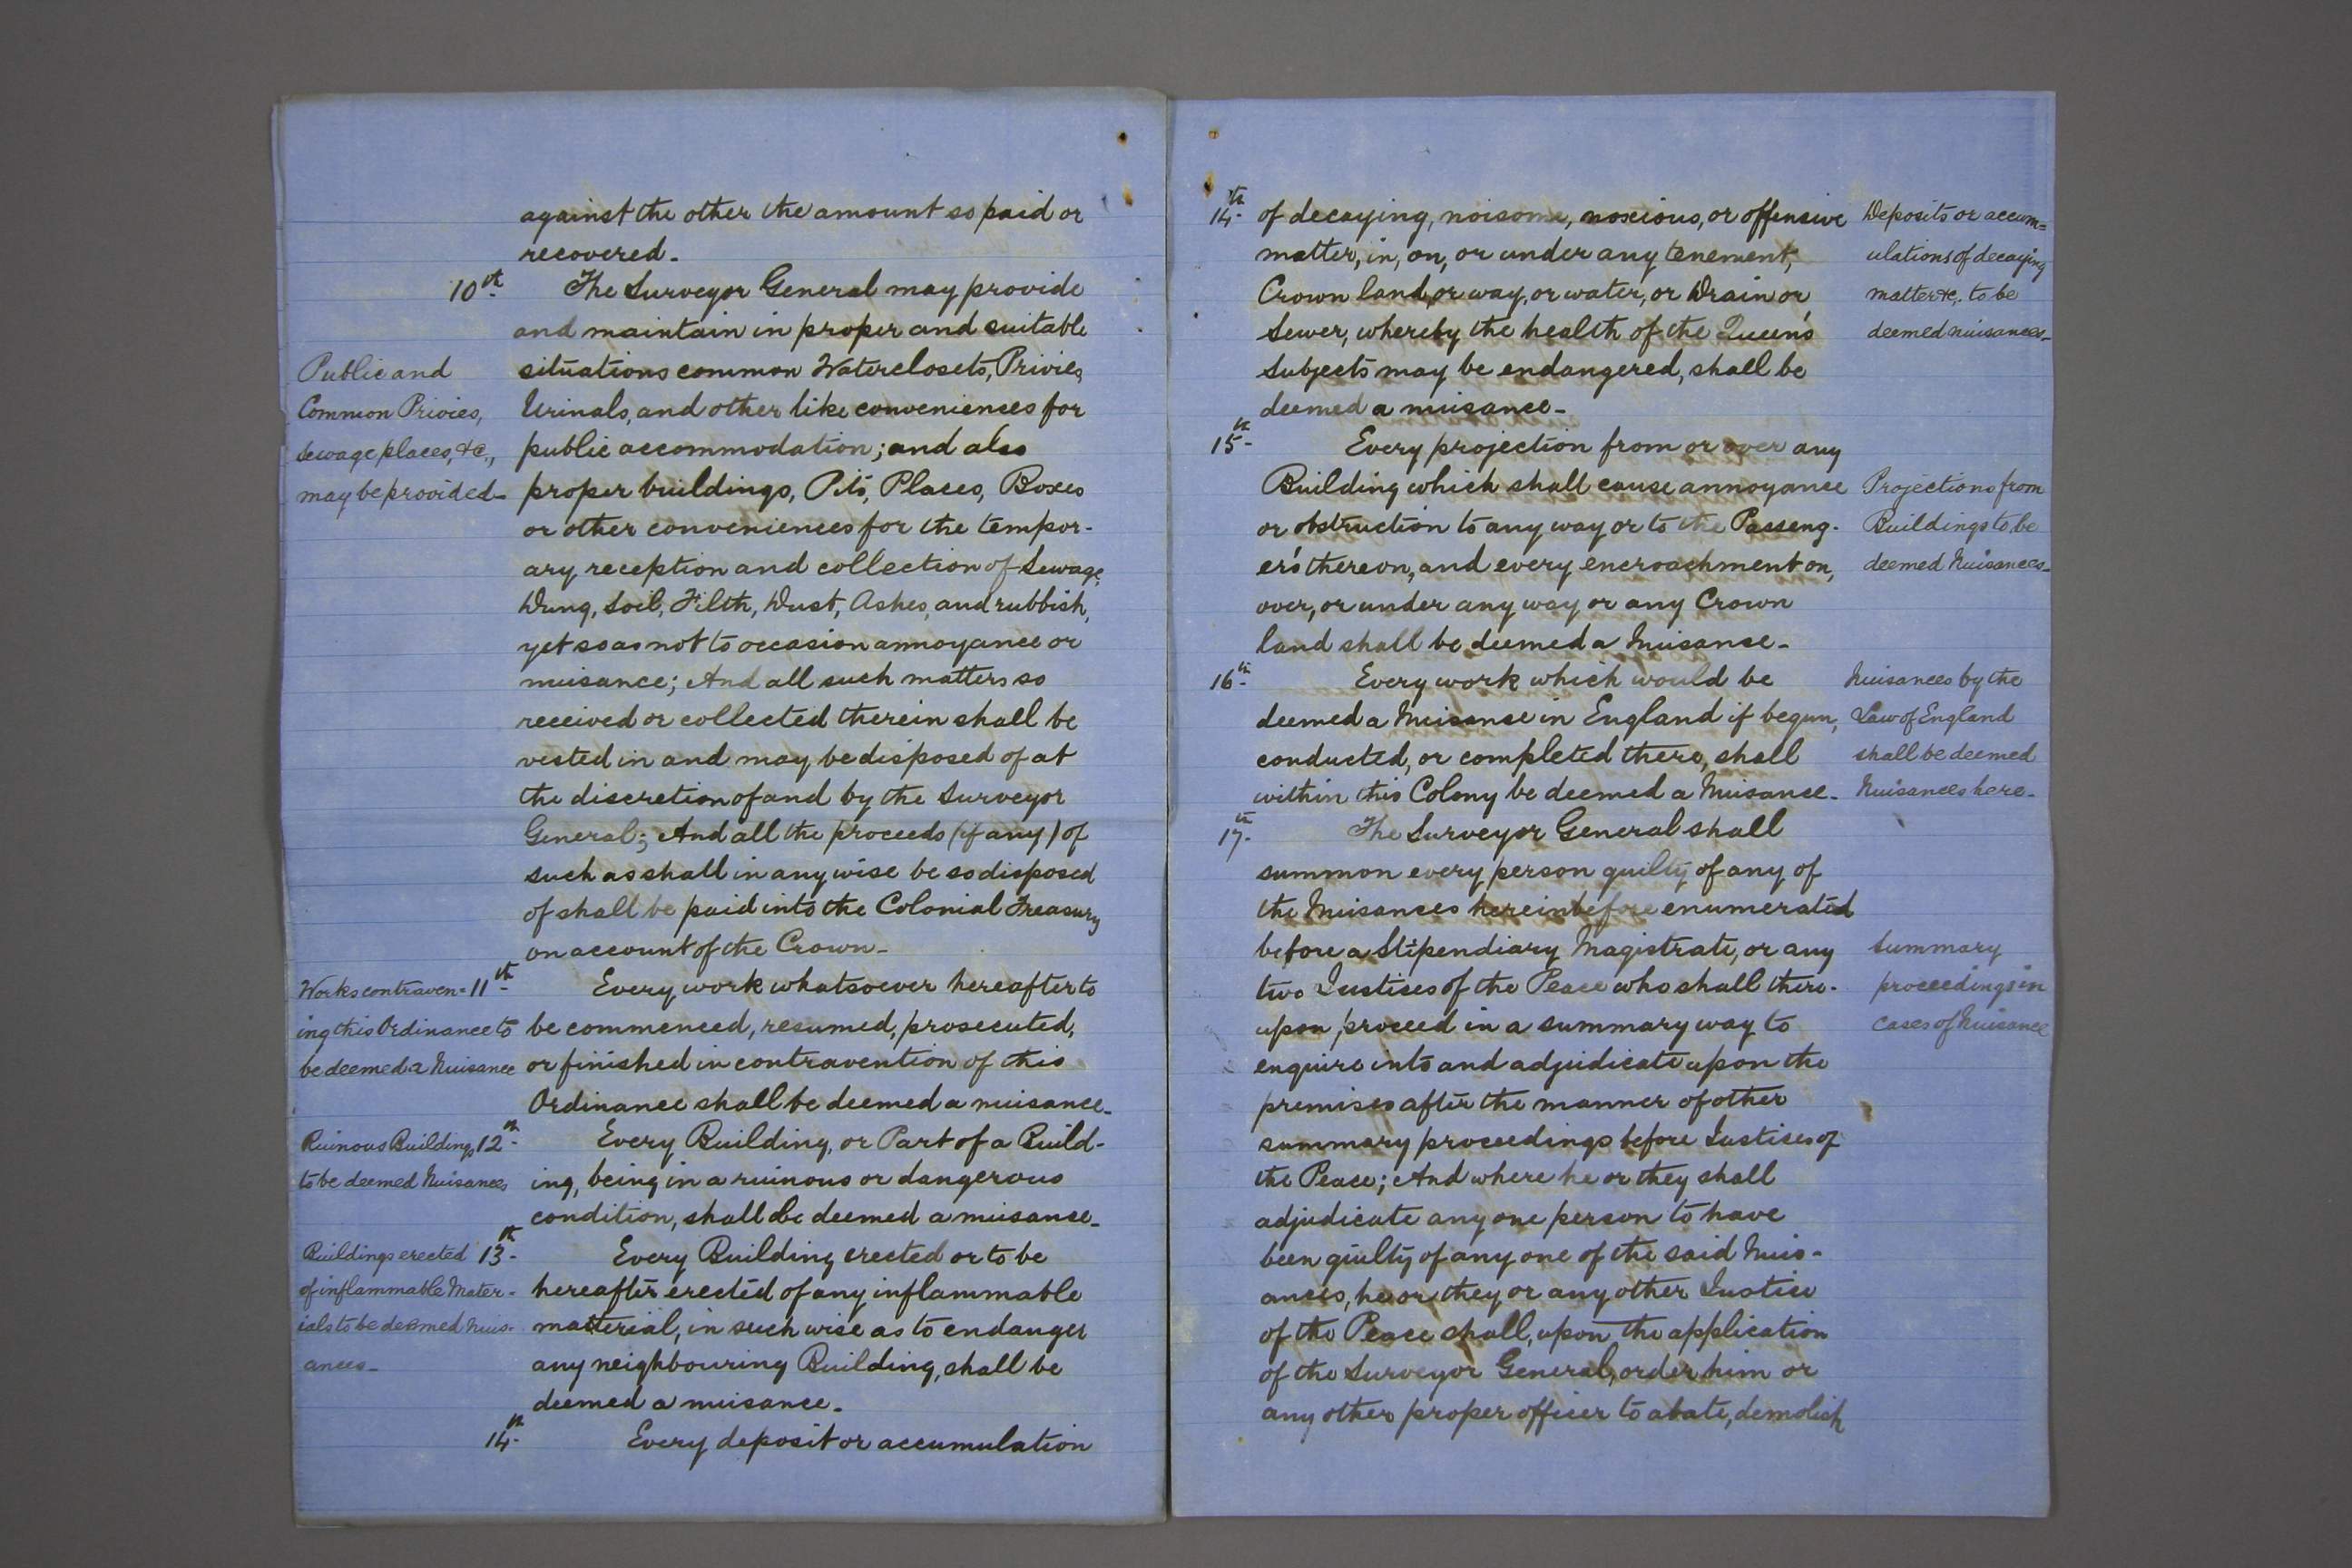 against the other the amount so paid or
recovered-
10th. The Surveyor General may provide
and maintain in proper and suitable
Public and
situations common Waterclosets, Privies,
Common Privies,
Urinals, and other like conveniences for
Sewage places, &c.,
public accommodation; and also
may be provided-
proper buildings, Pits, Places, Boxes
or other conveniences for the tempor-
ary reception and collection of Sewage,
Dung, Soil, Filth, Dust, Ashes, and rubbish,
yet so as not to occasion annoyance or
nuisance; And all such matters so
received or collected therein shall be
vested in and may be disposed of at
the discretion of and by the Surveyor
General; And all the proceeds (if any) of
such as shall in any wise be so disposed
of shall be paid into the Colonial Treasury
on account of the Crown-
Works contraven=
11th. Every work whatsoever hereafter to
ing this Ordinance to
be commenced, resumed, prosecuted,
be deemed a Nuisance
or finished in contravention of this
Ordinance shall be deemed a nuisance-
Ruinous Buildings
12th. Every Building, or Part of a Build-
to be deemed Nuisances
ing, being in a ruinous or dangerous
condition, shall be deemed a nuisance-
Buildings erected
13th. Every Building erected or to be
of inflammable Mater-
hereafter erected of any inflammable
ials to be deemed Nuis-
material, in such wise as to endanger
ances-
any neighbouring Building, shall be
deemed a nuisance-
14th. Every deposit or accumulation
14th. of decaying, noisome, noxious, or offensive
Deposits or accum=
matter, in, on, or under any tenement,
ulations of decaying
Crown land, or way, or water, or Drain or
matter &c, to be
Sewer, whereby the health of the Queen's
deemed nuisances-
Subjects may be endangered, shall be
deemed a nuisance-
15th Every projection from or over any
Building which shall cause annoyance
Projections from
or obstruction to any way or to the Passeng-
Buildings to be
ers thereon, and every encroachment on,
deemed Nuisances-
over, or under any way or any Crown
land shall be deemed a Nuisanse-
16th. Every work which would be
Nuisances by the
deemed a Nuisanse in England if begun,
Law of England
conducted, or completed there, shall
shall be deemed
within this Colony be deemed a Nuisance-
Nuisances here-
17th. The Surveyor General shall
summon every person guilty of any of
the Nuisances hereinbefore enumerated
before a Stipendiary Magistrate, or any
Summary
two Justices of the Peace who shall there-
proceedings in
upon proceed in a summary way to
cases of Nuisance
enquire into and adjudicate upon the
premises after the manner of other
summary proceedings before Justices of
the Peace; And where he or they shall
adjudicate any one person to have
been guilty of any one of the said Nuis-
ances, he or they or any other Justice
of the Peace shall, upon the application
of the Surveyor General, order him or
any other proper officer to abate, demolish